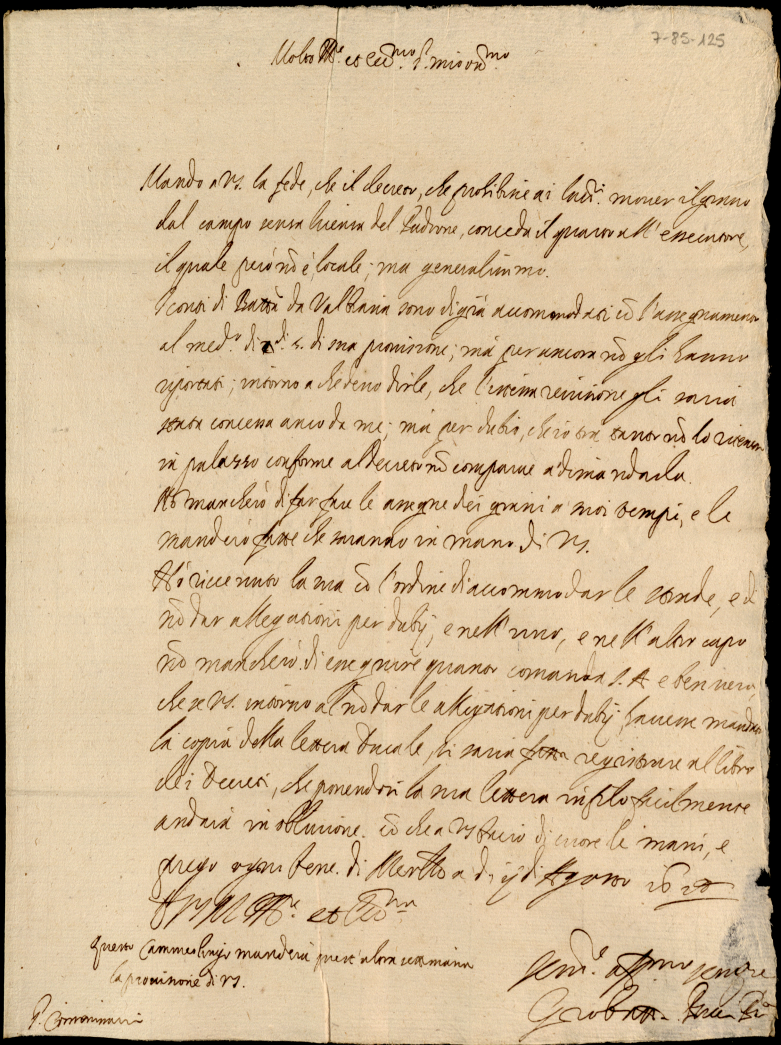 7-85-125
Molto Ill.re et Ecc.mo S. mio oss.mo
Mando a VS. la fede, che il decreto, che prohibisce ai lau.ri mouer il grano
dal campo senza licenza del Padrone, conceda il quarto all' essecutore,
il quale però nõ è locale; ma generalissimo.
I conti di Batta da Valstania sono di già accommodati cõ l'assegnamento
al med.o di di sua prouisione; ma per ancora nõ gli hanno
riportati; intorno a che deuo dirle, che l'istessa remissione gli saria
stata concessa anco da me; ma per dubio, che io nõ lo
in palazzo conforme al Decreto nõ comparue a dimandarla.
Nõ mancherò di far fare le assegne dei grani a suoi tempi, e le
manderò fatte che saranno in mano di VS.
Hò riceuuto la sua cõ l'ordine di accommodar le strade, e di
nõ dar allegationi per dubij, e nell' uno, e nell' altro capo
nõ mancherò di esseguire quanto comanda S. A. e ben uero,
che se VS. intorno al nõ dar le allegationi per dubij, hauesse mandato
la copia della lettera Ducale, si saria fatta registrare al libro
dei Decreti, che ponendosi la sua lettera in filo facilmente
andaria in obliuione. cõ che a VS bacio di cuore le mani, e
prego ogni bene. di a di Agosto
Di VS M Ill.re et Ecc.ma
Questo Cammerlingo manderà quest' altra settimana
la prouisione di VS.
Ser.re aff.mo sempre
Gio Batta